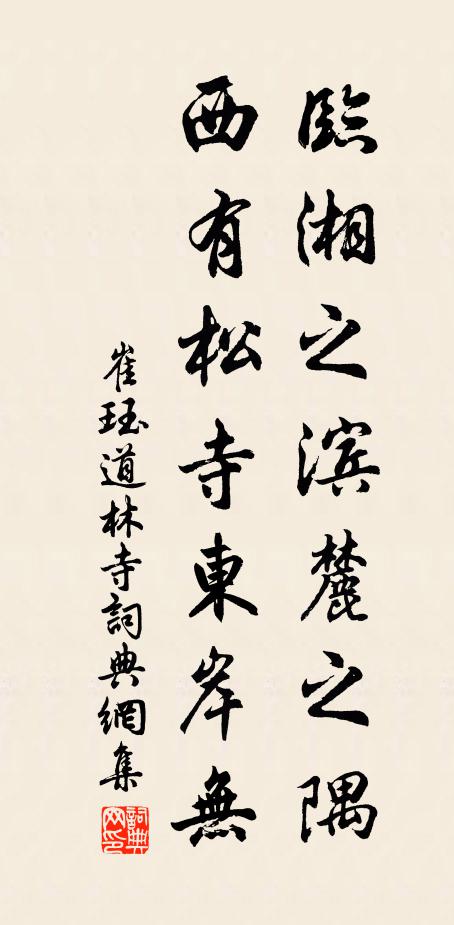 臨湘之滨麓之隅
西有松寺東岸無
崔珏道林寺詞典網集
詞典网印